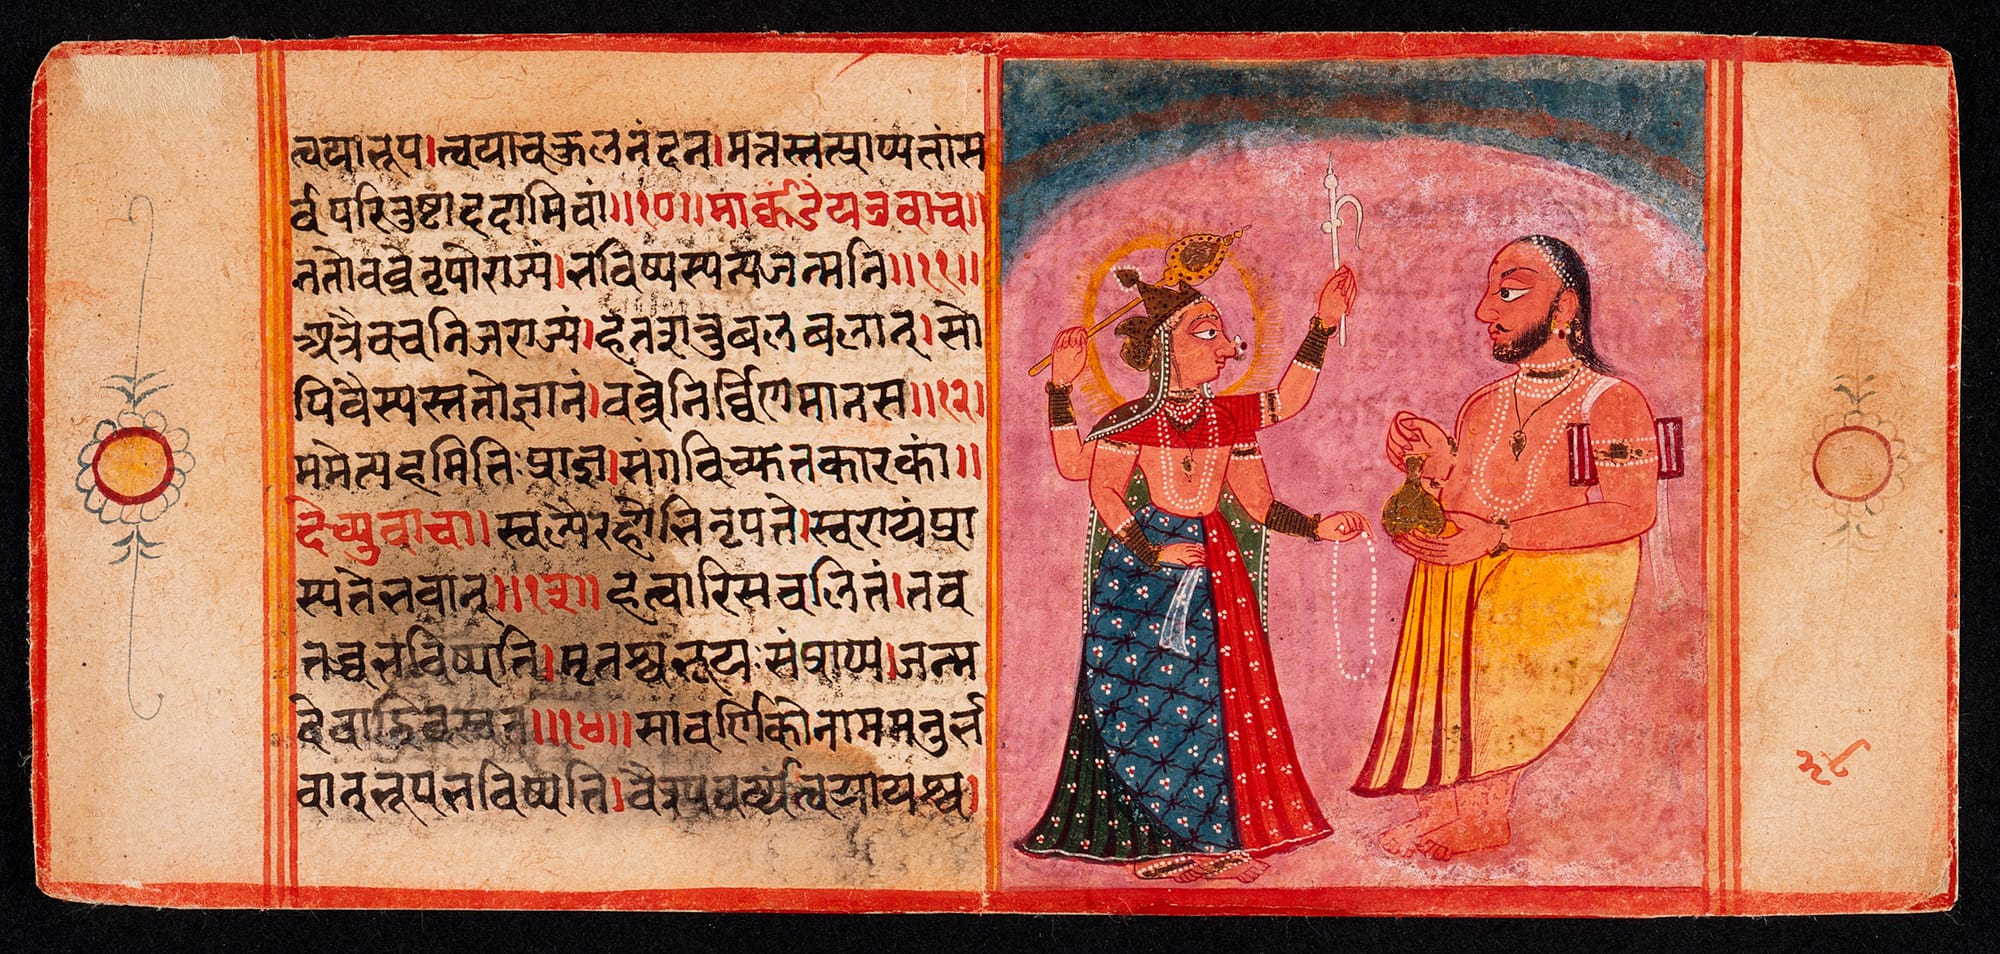 त्वयाभूप।त्वयाचकुलनंदन।मत्तस्तत्प्राप्यतांस
र्वपरितुष्टाददामिवां॥१०॥मार्क्कंडेयउवाच॥
ततोवव्रेनृपोराज्यं।भविष्यस्यन्यजन्मनि॥११॥
अत्रैवचनिजराज्यं।हतशत्रुबलबलात्।सो
पिवैस्यस्ततोज्ञानं।वव्रेनिर्व्विणमानस॥१२।
ममेत्यहमितिःप्राज्ञ।संगविच्युतकारकां॥
देव्युवाच।स्वल्पैरहोभिनृपते।स्वराज्यंप्रा
स्यतेभवान्॥१३॥हत्वारिसचलितं।तव
तत्रभविष्यति।मृतश्चभूयःसंप्राप्य।जन्म
देवाद्विवस्वत॥१४॥सावर्णिकोनाममनुर्भ
वान्भूपभविष्यति।वैश्यवर्यत्वयायश्च।